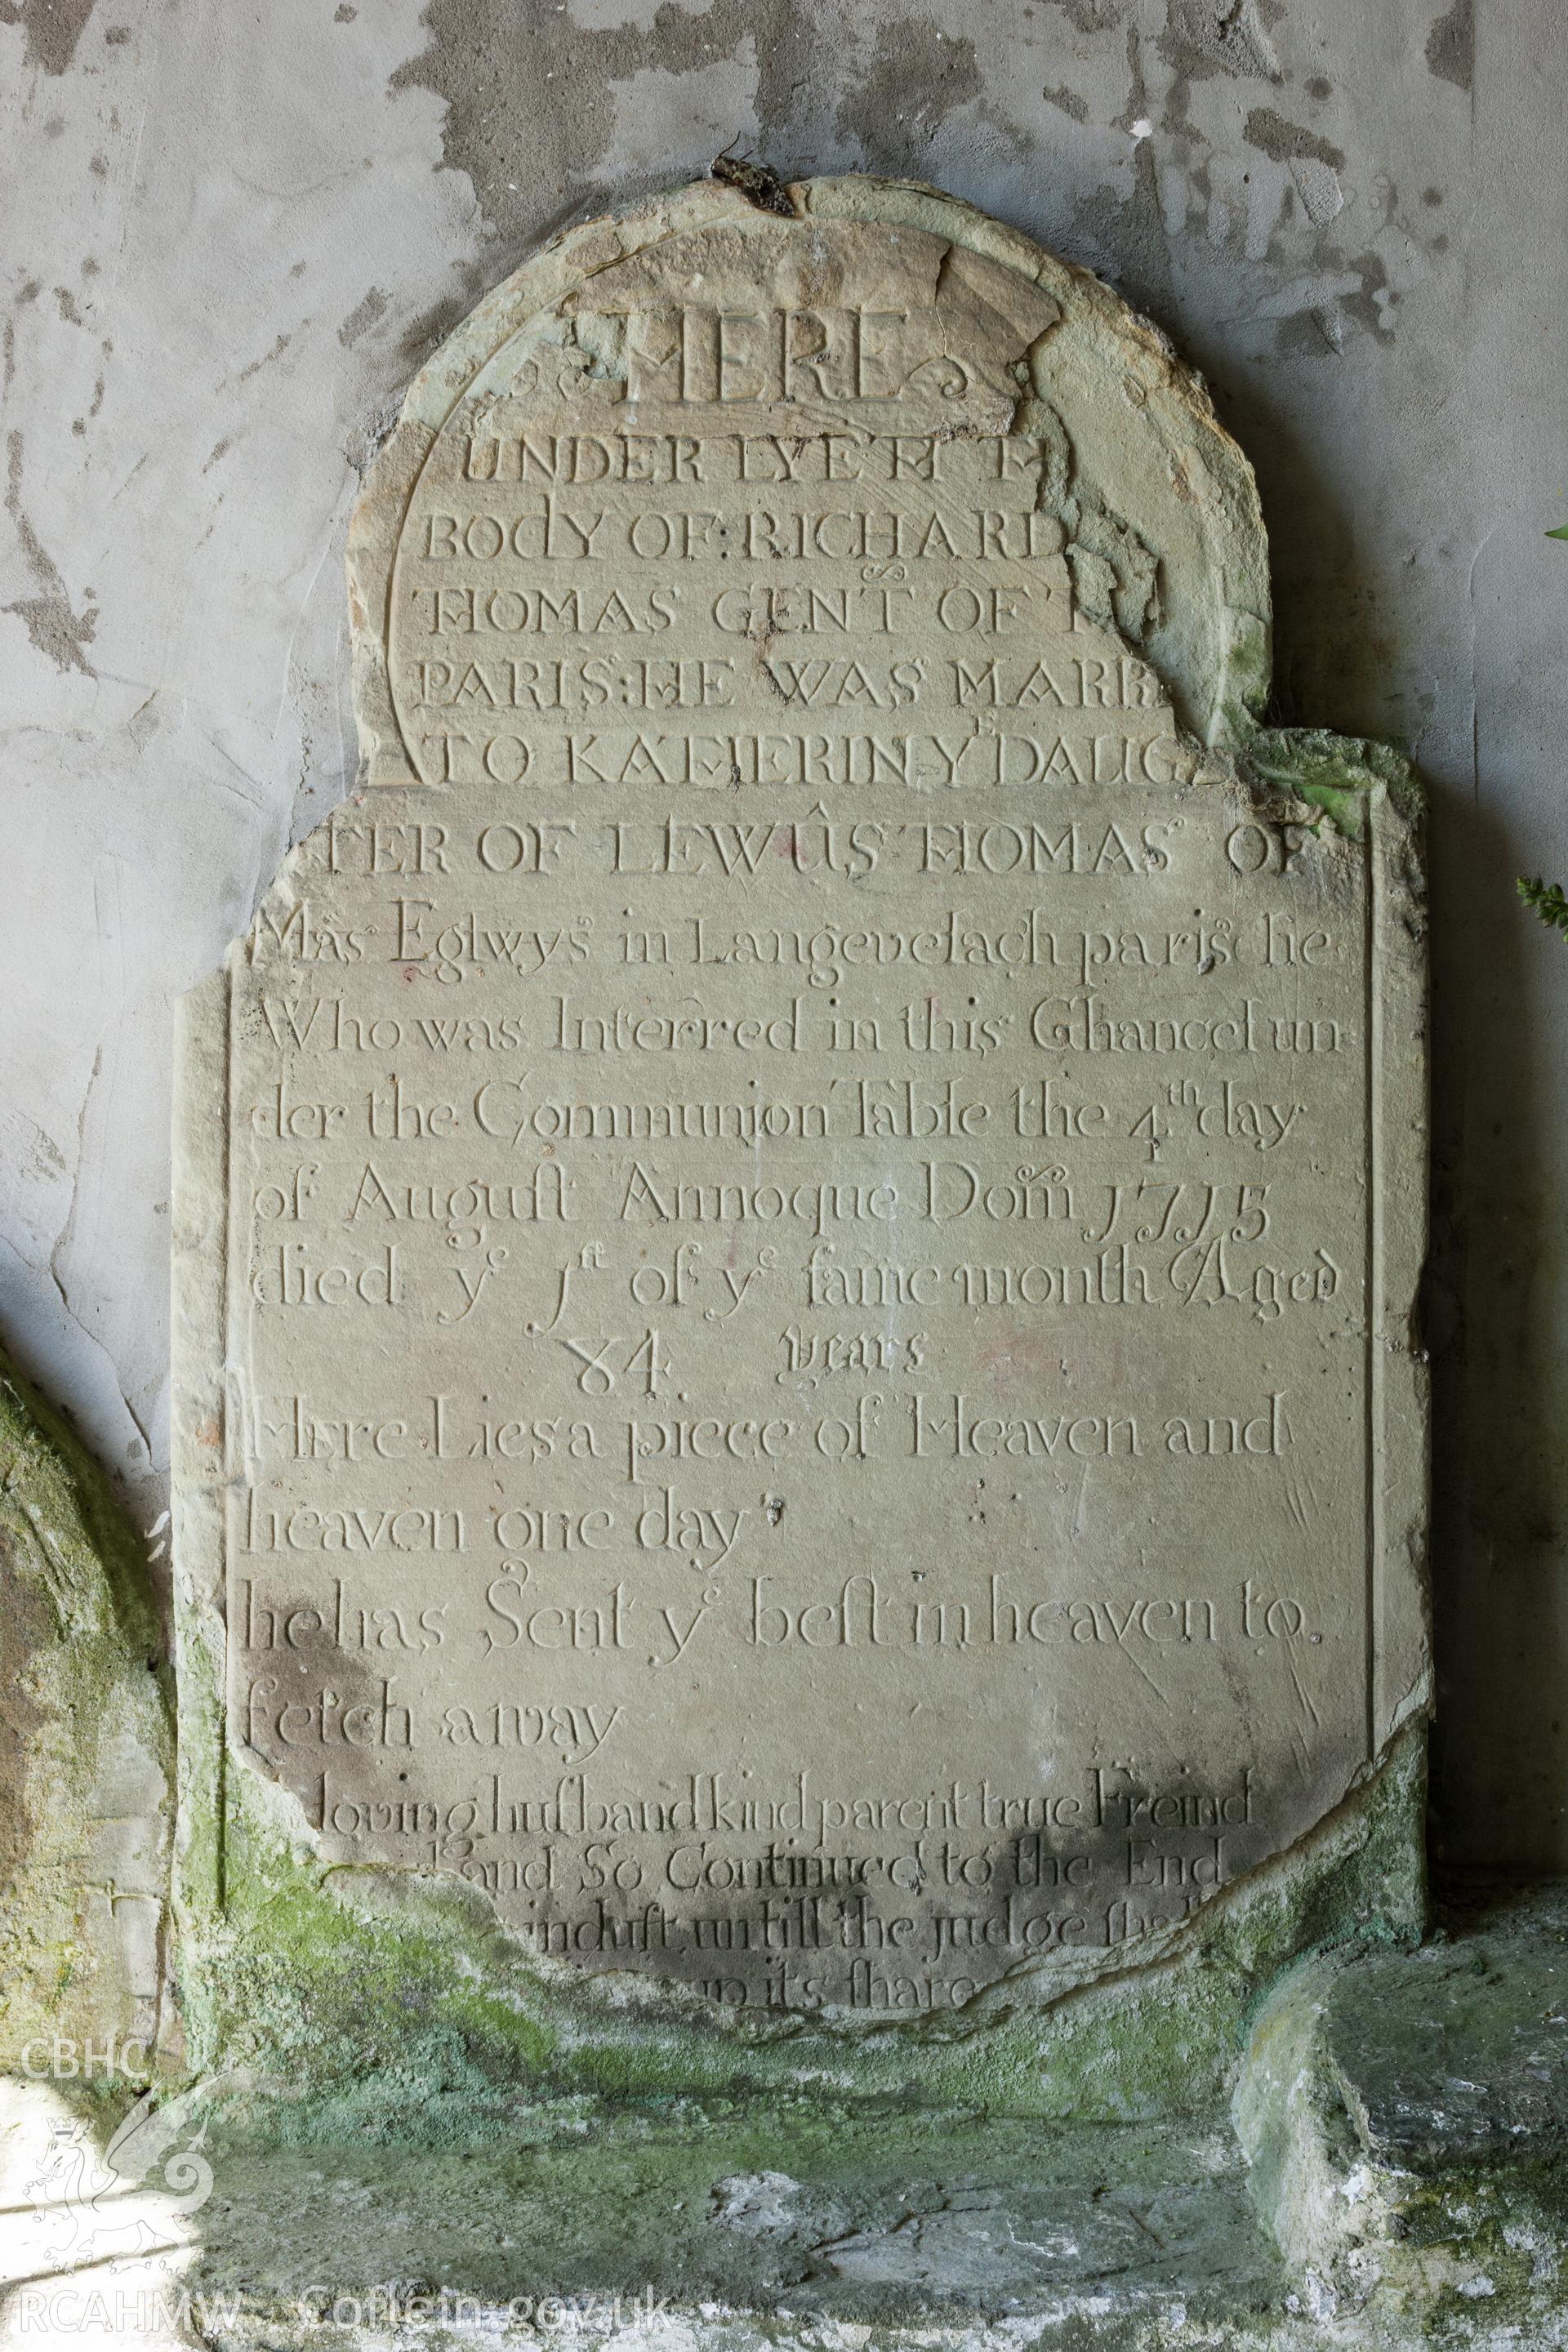 HERE
UNDER LYETH TH
BOdY OF: RICHARD
THOMAS GENT OF
PARIS: HE WAS MARR
TO KATHERIN Yᴱ DAUG
TER OF LEWÛS THOMAS OF
Mâs Eglwys in Langevelach parish he
Who was Interred in this Chancel un-
der the Communion Table the 4.th day
of August Annoque Dom̃ 1715
died ye 1st of ye same month Aged
84 years
Here Lies a piece of Heaven and
heaven one day
he has Sent ye best in heaven to
fetch away
loving husband kind parent true Freind
and So Continued to the End
in dust untill the judge shall
up it's share
CBHC
RCAHMW Coflein.gov.uk